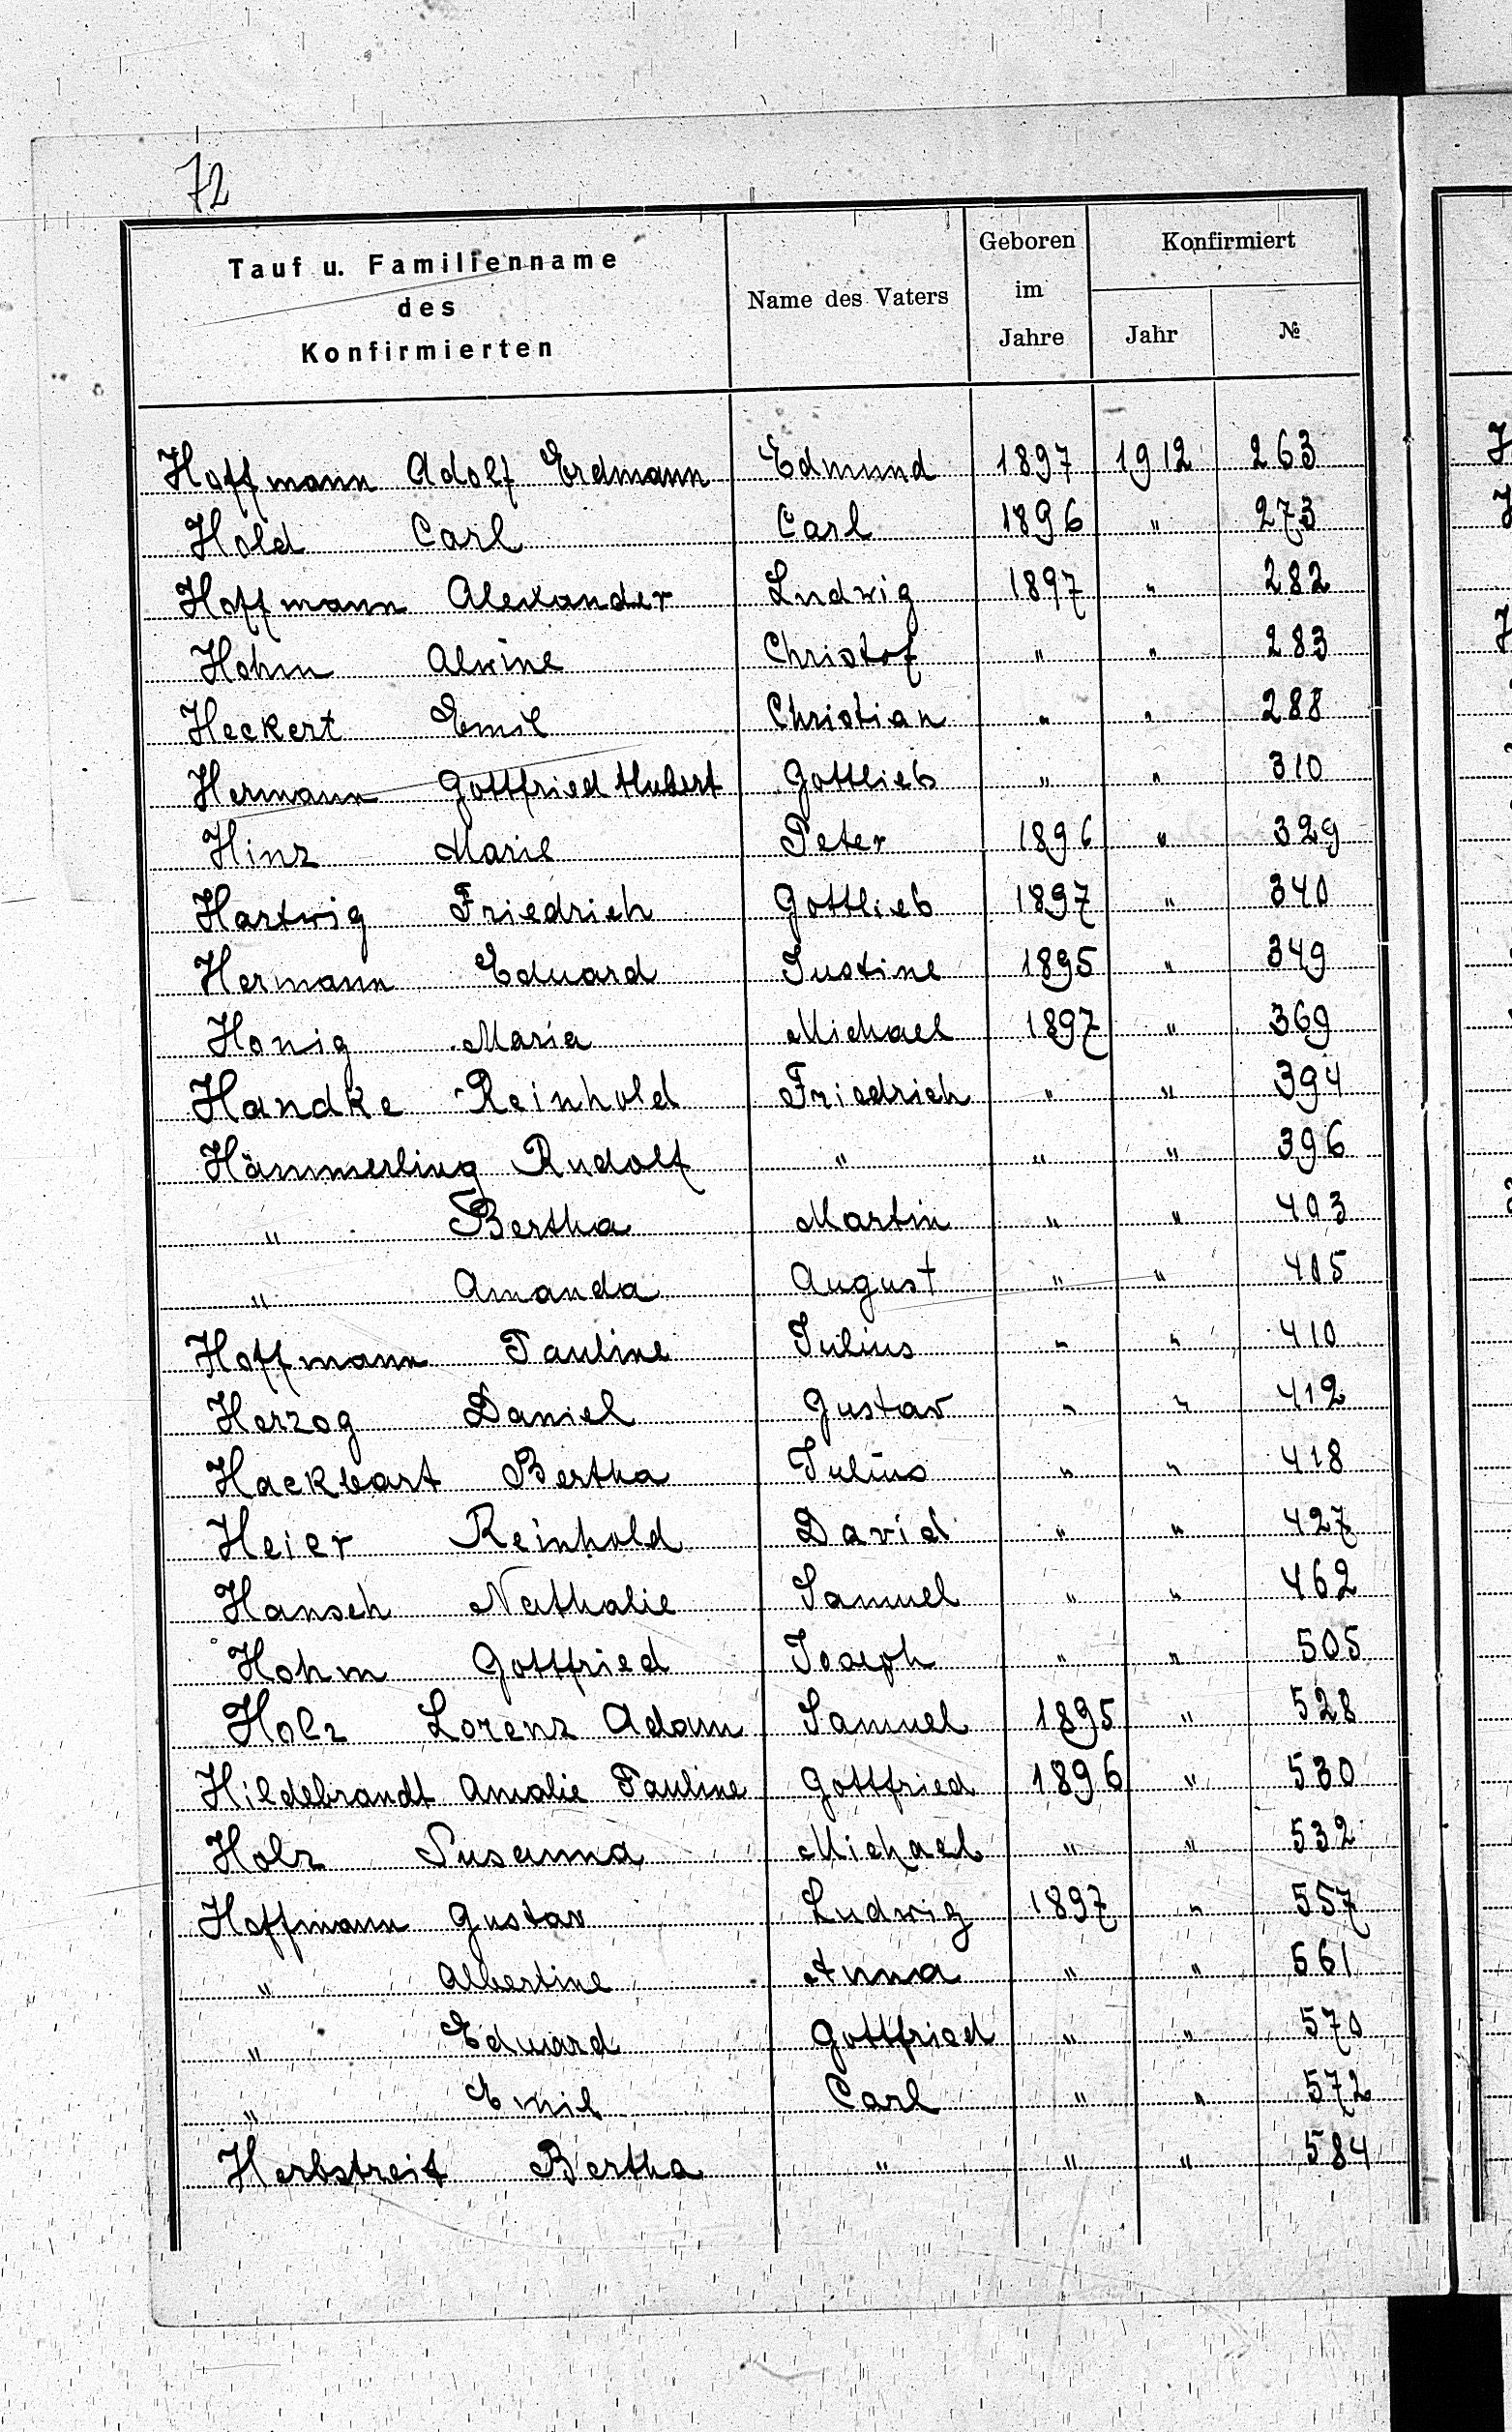 72
Tauf u. Familienname
des
Konfirmierten
Name des Vaters
Geboren
im
Jahre
Konfirmiert
Jahr
№
Hoffmann Adolf Erdmann Edmund 1897 1912 263
Hold Carl Carl 1896 " 273
Hoffmann Alexander Ludwig 1897 " 282
Hohm Alwine Christof " " 283
Heckert Emil Christian " " 288
Hermann Gottfried Hubert Gottlieb " " 310
Hinz Marie Peter 1896 " 329
Hartwig Friedrich Gottlieb 1897 " 340
Hermann Eduard Justine 1895 " 349
Honig Maria Michael 1897 " 369
Handke Reinhold Friedrich " " 394
Hämmerling Rudolf " " " 396
" Bertha Martin " " 403
" Amanda August " " 405
Hoffmann Pauline Julius " " 410
Herzog Daniel Gustav " " 412
Hackbart Bertha Julius " " 418
Heier Reinhold David " " 427
Hansch Nathalie Samuel " " 462
Hohm Gottfried Joseph " " 505
Holz Lorenz Adam Samuel 1895 " 528
Hildebrandt Amalie Pauline Gottfried 1896 " 530
Holz Susanna Michael " " 532
Hoffmann Gustav Ludwig 1897 " 557
" Albertine Anna " " 561
" Eduard Gottfried " " 570
" Emil Carl " " 572
Herbstreit Bertha " " " 584